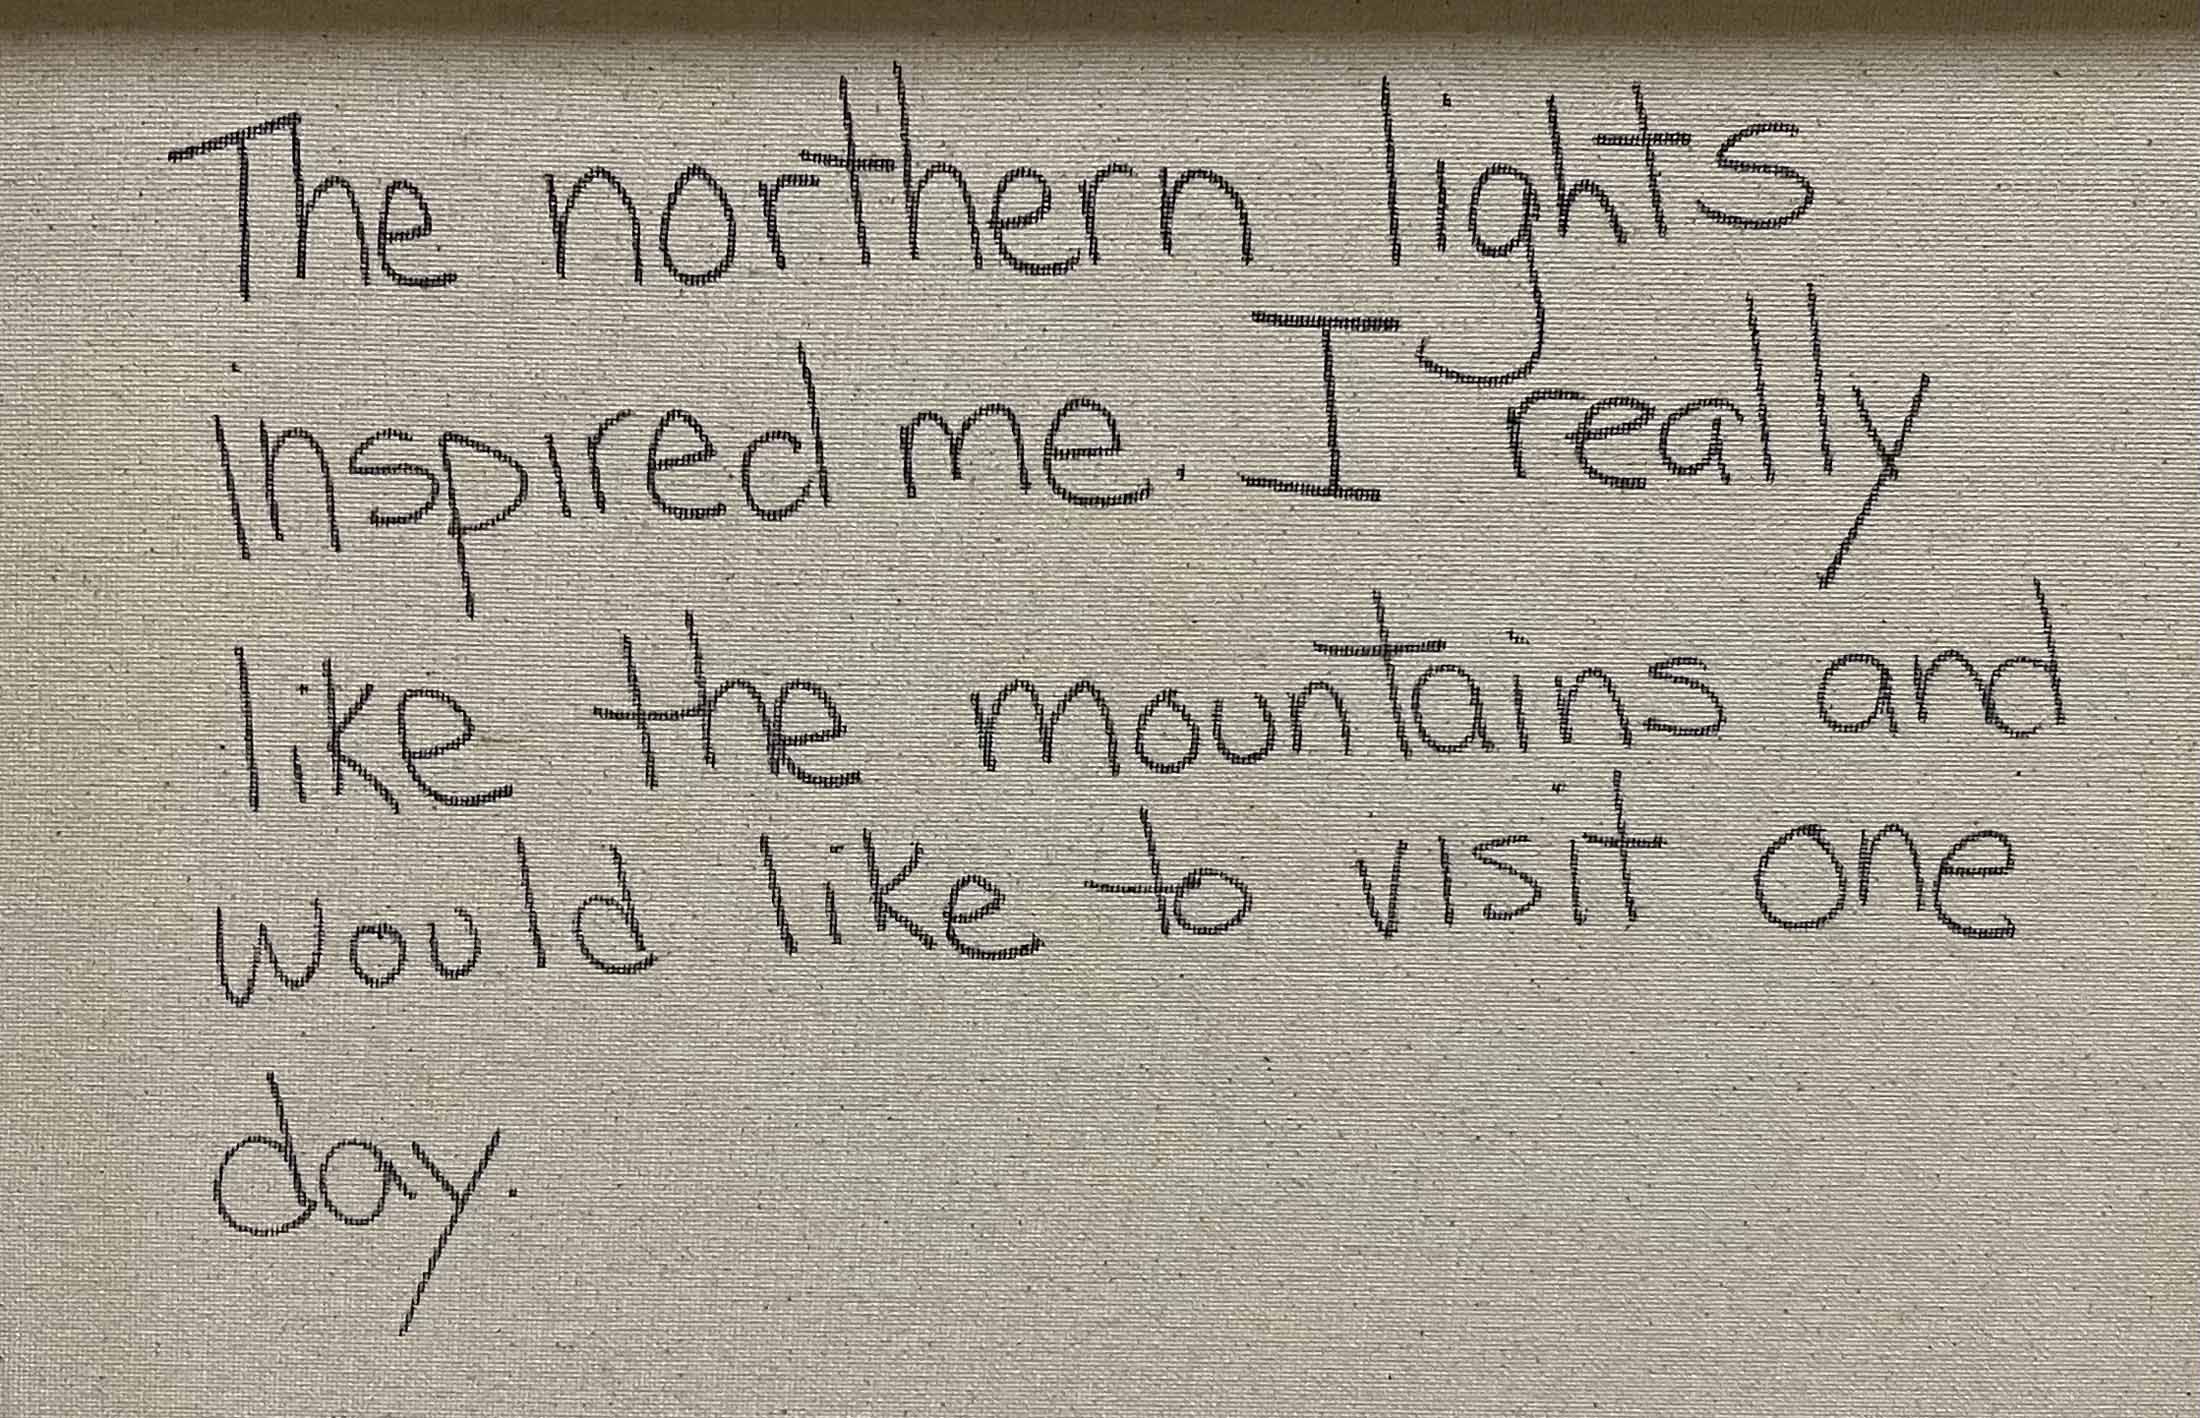 The northern lights
inspired me. I really
like the mountains and
would like to visit one
day.